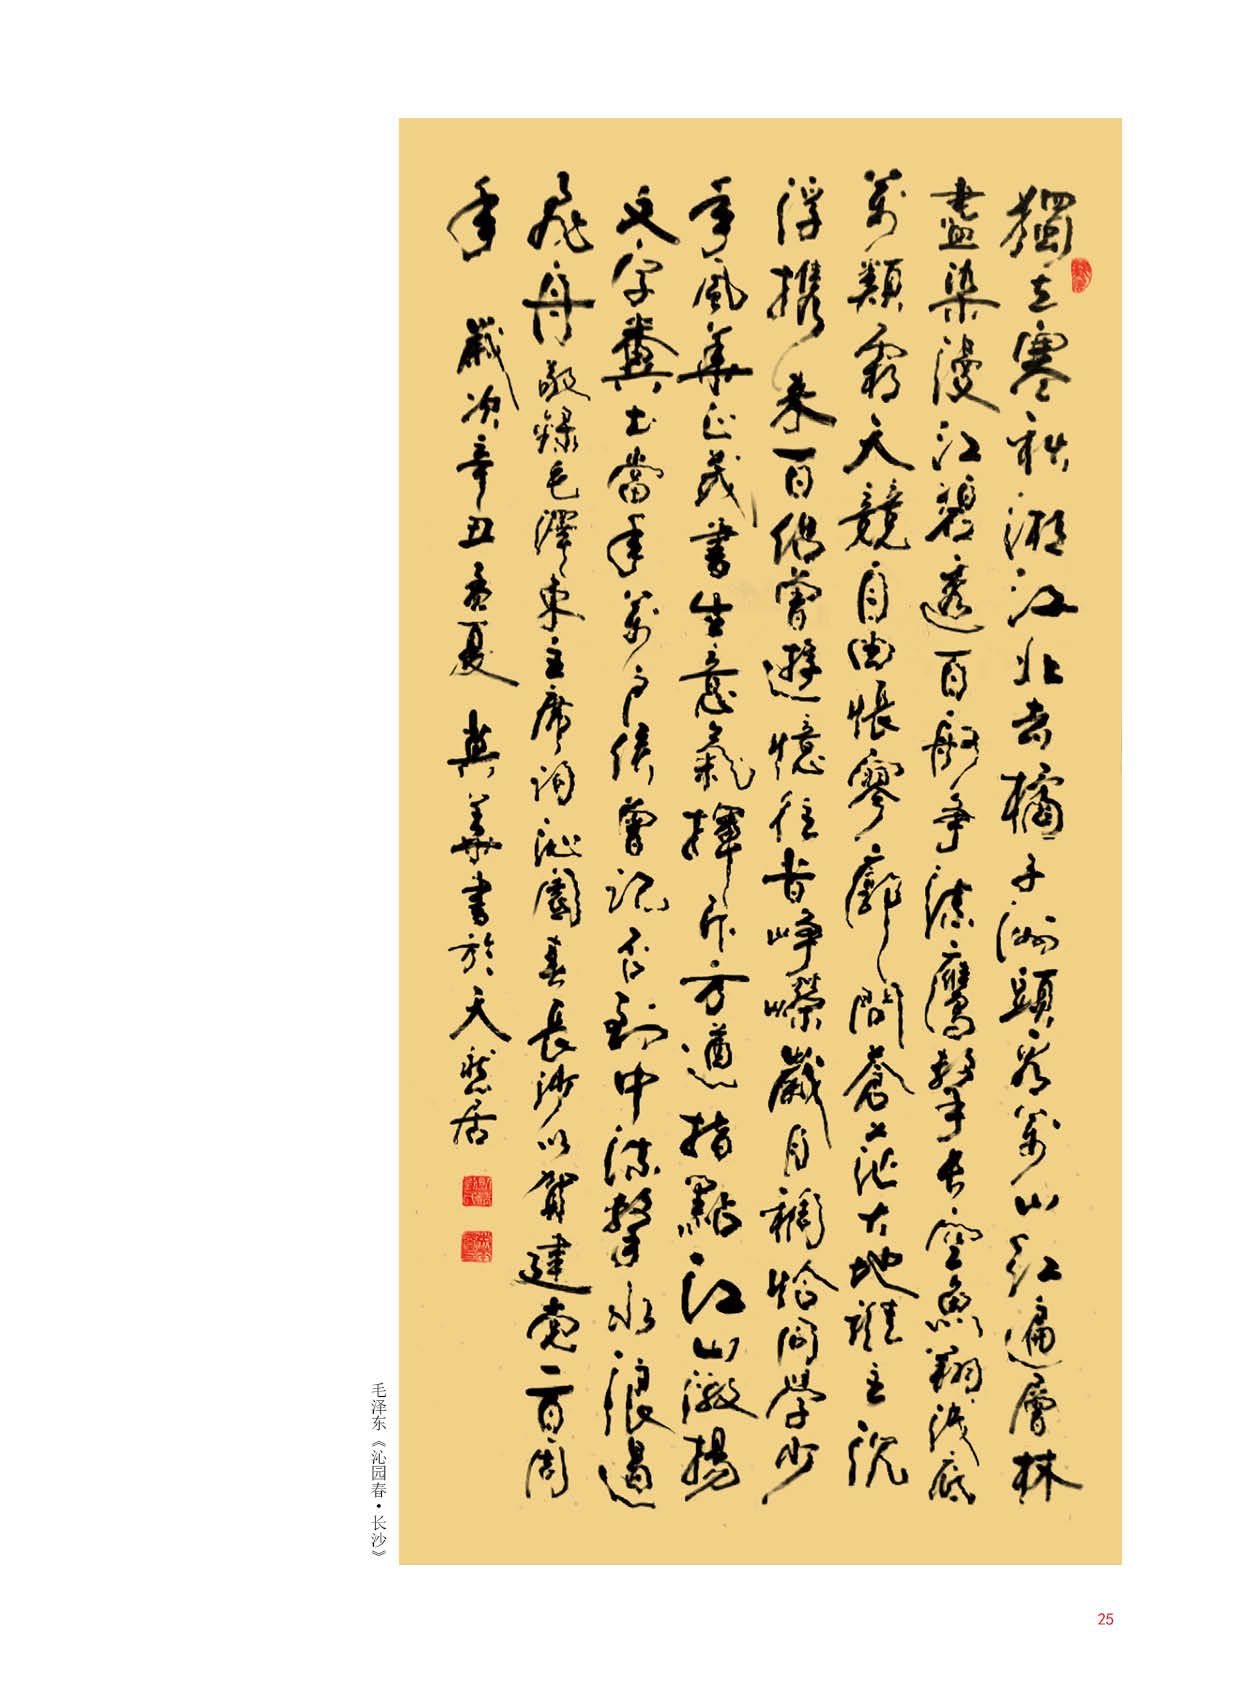 獨立寒秋湘江北去橘子洲頭看萬山紅遍層林
盡染漫江碧透百舸争流鷹擊長空魚翔淺底
萬類霜天競自由悵寥廓問蒼茫大地誰主沉
浮携来百侣曾遊憶往昔崢嶸歲月稠恰同學少
年風華正茂書生意氣揮斥方遒指點江山激揚
文字糞土當年萬户侯曾記否到中流擊水浪遏
飛舟敬録毛澤東主席詞沁園春長沙以賀建党一百周
年 歲次辛丑孟夏 華書於天然居
毛泽东《沁园春·长沙》
25